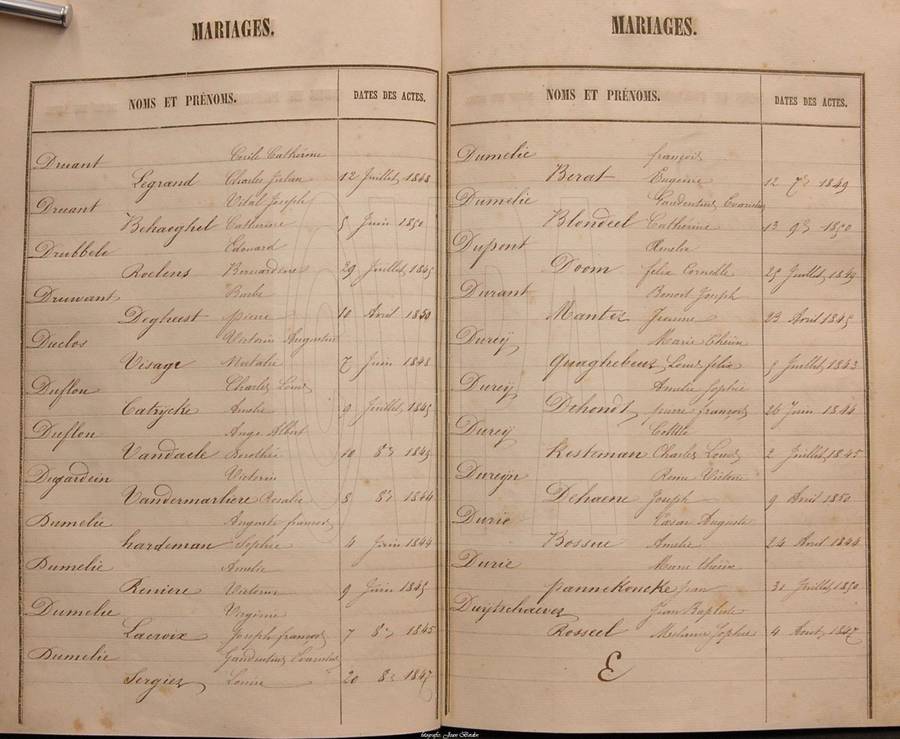 MARIAGES.
NOMS ET PRÉNOMS. DATES DES ACTES.
Druant Cecile Cathérine
Legrand Charles Julien 12 Juillet 1848
Druant Vital Joseph
Behaeghel Catherine 5 Juin 1850
Drubbele Edouard
Roelens Bernardine 29 Juillet 1845
Druwant Barbe
Degheest pierre 10 Avril 1850
Duclos Victorin Augustin
Visage Natalie 7 Juin 1848
Duflou Charles Louis
Catrycke Amelie 9 Juillet 1845
Duflou Ange Albert
Vandaele Dorothée 10 8re 1849
Dujardein Victorin
Vandermarliere Rosalie 8 8re 1844
Dumelie Auguste francois
hardeman Sophie 4 Juin 1844
Dumelie Amelie
Reniere 9 Juin 1845
Dumelie Virginie
Lacroix Joseph francois 7 8re 1845
Dumelie Gaudentius Evarestus
Sergier Louise 20 8re 1847
MARIAGES.
NOMS ET PRÉNOMS. DATES DES ACTES.
Dumelie françois
Berat Eugénie 12 7re 1849
Dumelie Gaudentius
Blondeel Catherine 13 9re 1850
Dupont Amelie
Doom felix Corneille 25 Juillet 1849
Durant Benoit Joseph
Mantez Jeanne 23 Avril 1845
Dureij Marie Thérèse
Quaghebeur Louis felix 5 Juillet 1843
Dureij Amelie Sophie
Dehondt pierre françois 26 Juin 1844
Dureij
Kesteman Charles Louis 2 Juillet 1845
Dureijn Rosine Victoire
Dehaene Joseph 9 Avril 1850
Durie Cesar Auguste
Bossue Amelie 24 Avril 1844
Durie Marie thérèse
pannekoucke jean 31 Juillet 1850
Duijtschaever Jean Baptiste
Rosseel Melanie Sophie 4 Aout 1847
E
fotografie: Joan Bodin